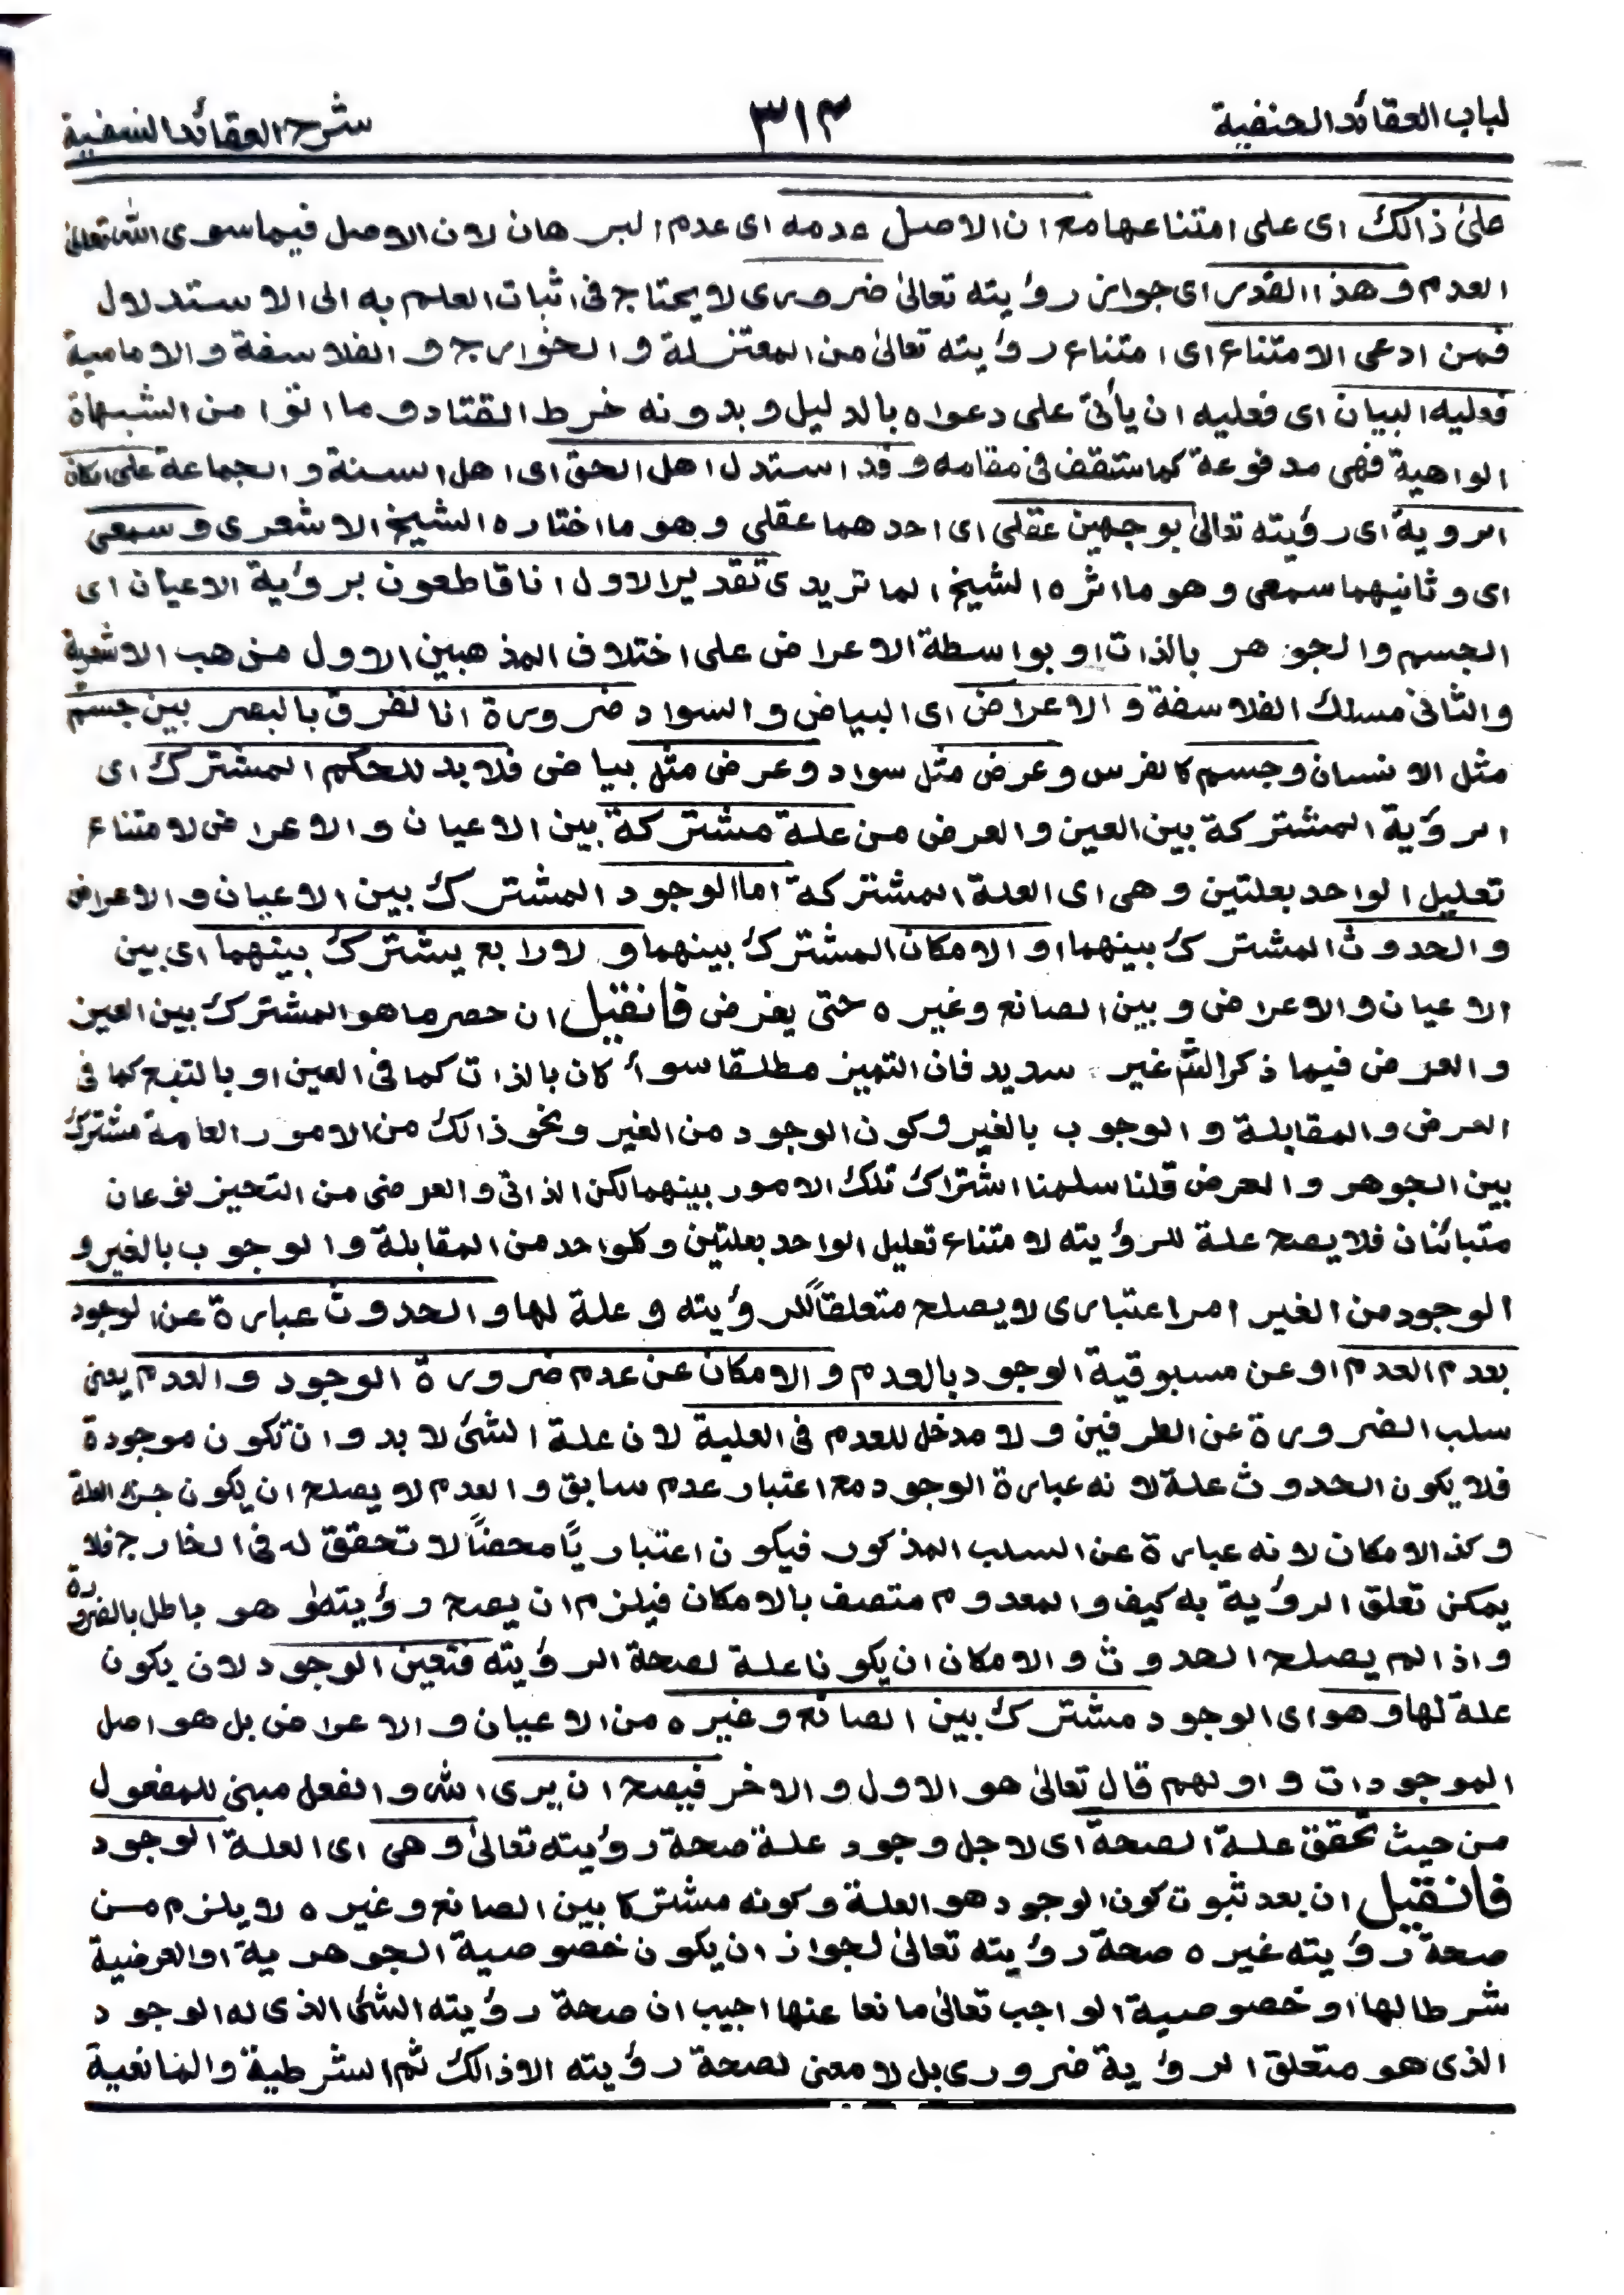 لباب العقائد الحنفية
٣١٣
شرح العقائد النسفية
على ذالك اى على امتناعها مع ان الاصل عدمه اى عدم البرهان لان الاصل فيما سوى الله تعالىٰ
العدم وهذا القدر اى جواز رؤيته تعالىٰ ضرورى لا يحتاج فى اثبات العلم به الى الاستدلال
فمن ادعى الامتناع اى امتناع رؤيته تعالىٰ من المعتزلة و الخوارج و الفلاسفة و الامامية
فعليه البيان اى فعليه ان يأتى على دعواه بالدليل و بدونه خرط القتاد و ما اتوا من الشبهاة
الواهية فهى مدفوعة كما ستقف فى مقامه و قد استدل اهل الحق اى اهل السنة و الجماعة على امكان
الروية اى رؤيته تعالىٰ بوجهين عقلى اى احدهما عقلى و هو ما اختاره الشيخ الاشعرى و سمعى
اى و ثانيهما سمعى و هو ما اثره الشيخ الماتريدى تقدير الاول انا قاطعون برؤية الاعيان اى
الجسم و الجوهر بالذات او بواسطة الاعراض على اختلاف المذهبين الاول مذهب الاشعرية
و الثانى مسلك الفلاسفة و الاعراض اى البياض و السواد ضرورة انا نفرق بالبصر بين جسم
مثل الانسان و جسم كالفرس و عرض مثل سواد و عرض مثل بياض فلا بد للحكم المشترك اى
الرؤية المشتركة بين العين و العرض من علة مشتركة بين الاعيان و الاعراض لامتناع
تعليل الواحد بعلتين و هى اى العلة المشتركة اما الوجود المشترك بين الاعيان و الاعراض
و الحدوث المشترك بينهما او الامكان المشترك بينهما و لا رابع يشترك بينهما اى بين
الاعيان و الاعراض و بين الصانع و غيره حتى يفرض فان قيل ان حصر ما هو المشترك بين العين
و العرض فيما ذكر الشم غير سديد فان التميز مطلقا سواء كان بالذات كما فى العين او بالتبع كما فى
العرض و المقابلة و الوجوب بالغير و كون الوجود من الغير و نحو ذالك من الامور العامة مشترك
بين الجوهر و العرض قلنا سلمنا اشتراك تلك الامور بينهما لكن الذاتى و العرضى من التحيز نوعان
متبائنان فلا يصح علة للرؤيته لامتناع تعليل الواحد بعلتين و كلواحد من المقابلة و الوجوب بالغير و
الوجود من الغير امر اعتبارى لا يصلح متعلقاً للرؤيته و علة لها و الحدوث عبارة عن الوجود
بعدم العدم او عن مسبوقية الوجود بالعدم و الامكان عن عدم ضرورة الوجود و العدم يعنى
سلب الضرورة عن الطرفين و لا مدخل للعدم فى العلية لان علة الشئ لا بد و ان تكون موجودة
فلا يكون الحدوث علة لانه عبارة الوجود مع اعتبار عدم سابق و العدم لا يصلح ان يكون جزء العلة
و كذ الامكان لانه عبارة عن السلب المذكور فيكون اعتبارياً محضاً لا تحقق له فى الخارج فلا
يمكن تعلق الرؤية به كيف و المعدوم متصف بالامكان فيلزم ان يصح رؤيته و هو باطل بالضرورة
و اذا لم يصلح الحدوث و الامكان ان يكونا علة لصحة الرؤيته فتعين الوجود لان يكون
علة لها و هو اى الوجود مشترك بين الصانع و غيره من الاعيان و الاعراض بل هو اصل
الموجودات و اولهم قال تعالىٰ هو الاول و الاخر فيصح ان يرى الله و الفعل مبنى للمفعول
من حيث تحقق علة الصحة اى لاجل وجود علة صحة رؤيته تعالىٰ و هى اى العلة الوجود
فان قيل ان بعد ثبوت كون الوجود هو العلة و كونه مشتركا بين الصانع و غيره لا يلزم من
صحة رؤيته غيره صحة رؤيته تعالىٰ لجواز ان يكون خصوصية الجوهرية او العرضية
شرطا لها او خصوصية الواجب تعالىٰ مانعا عنها اجيب ان صحة رؤيته الشئ الذى له الوجود
الذى هو متعلق الرؤية ضرورى بل لا معنى لصحة رؤيته الا ذالك ثم الشرطية و المانعية